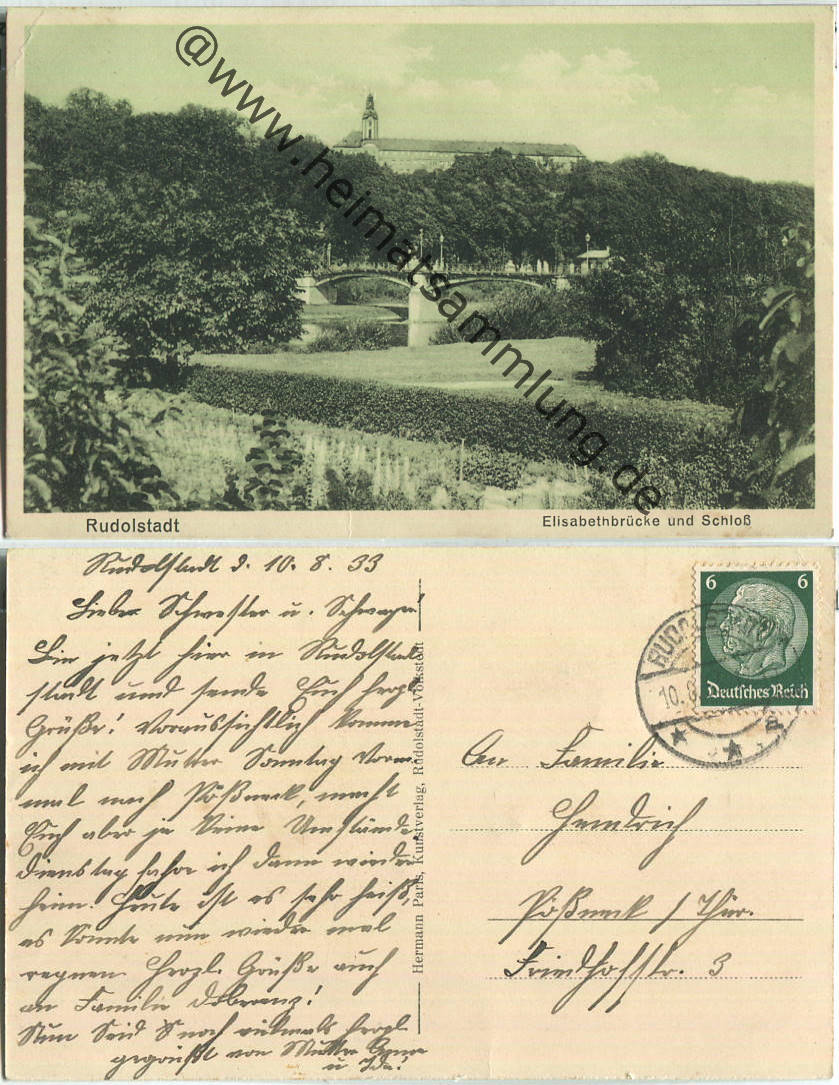 @www.heimatsammlung.de
Rudolstadt
Elisabethbrücke und Schloß
Rudolstadt d. 10. 8. 33
Liebe Schwester u. Schwager!
Bin jetzt hier in Rudolstadt
stadt und sende Euch herzl.
Grüße! Voraussichtlich komme
ich mit Mutter Sonntag Vormit
mal nach Pößneck, macht
Euch aber ja keine Umstände.
Dienstag fahre ich dann wieder
heim. Heute ist es sehr heiß,
es könnte nun wieder mal
regnen. Herzl. Grüße auch
an Familie Doberenz!
Nun seid noch vielmals herzl.
gegrüßt von Mutter
u. Ida!
Hermann Paris, Kunstverlag, Rudolstadt-Volkstedt
6 6
Deutsches Reich
RUDOLSTADT
10.8.
a
An Familie
Hendrich
Pößneck / Thür.
Friedhofstr. 3